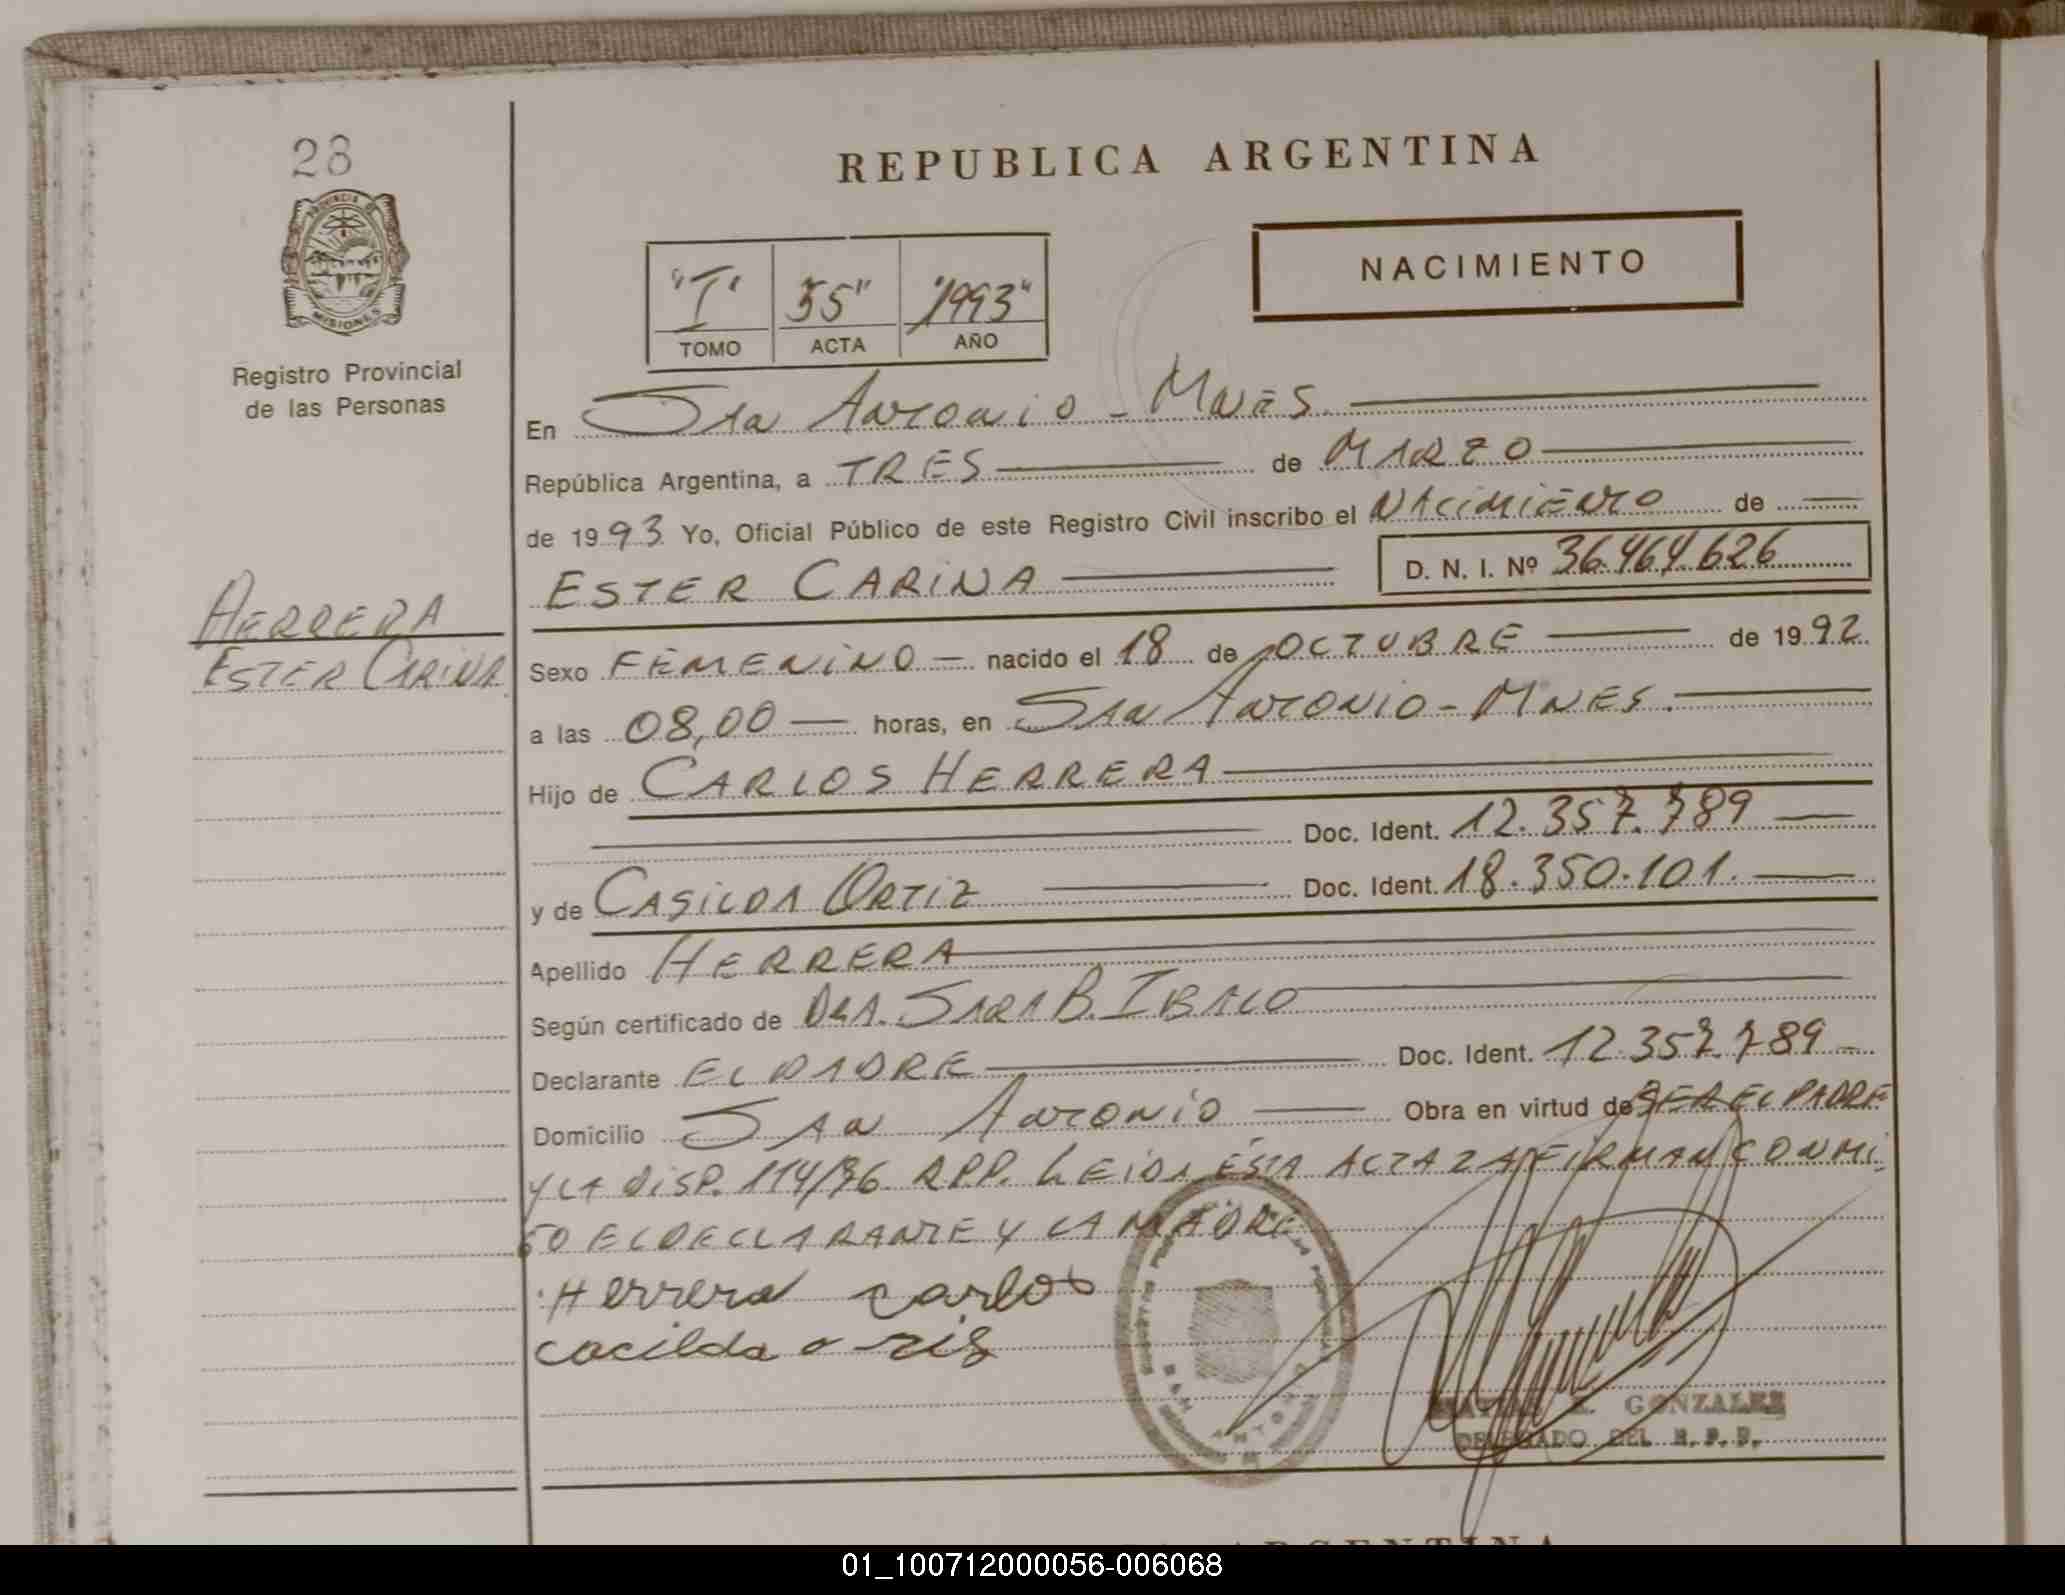 28
PROVINCIA DE
MISIONES
Registro Provincial
de las Personas
HERRERA
ESTER CARINA
REPUBLICA ARGENTINA
"I" 55" "1993"
TOMO ACTA AÑO
NACIMIENTO
En San Antonio - Mnes.
República Argentina, a TRES de MARZO
de 1993 Yo, Oficial Público de este Registro Civil inscribo el NACIMIENTO de
ESTER CARINA D. N. I. Nº 36.464.626
Sexo FEMENINO nacido el 18 de OCTUBRE de 1992
a las 08,00 horas, en San Antonio - MNES.
Hijo de CARLOS HERRERA
Doc. Ident. 12.357.789
y de CASILDA ORTIZ Doc. Ident. 18.350.101.
Apellido HERRERA
Según certificado de DRA. SARA B.
Declarante EL PADRE Doc. Ident. 12.357.789
Domicilio San Antonio Obra en virtud de SER EL PADRE
Y LA DISP. 114/76 RPP. LEIDA ESTA ACTA LA FIRMAN CONMI
GO EL DECLARANTE Y LA MADRE
Herrera carlos
cacilda
GONZALEZ
DELEGADO DEL R.P.P.
ARGENTINA
01_100712000056-006068